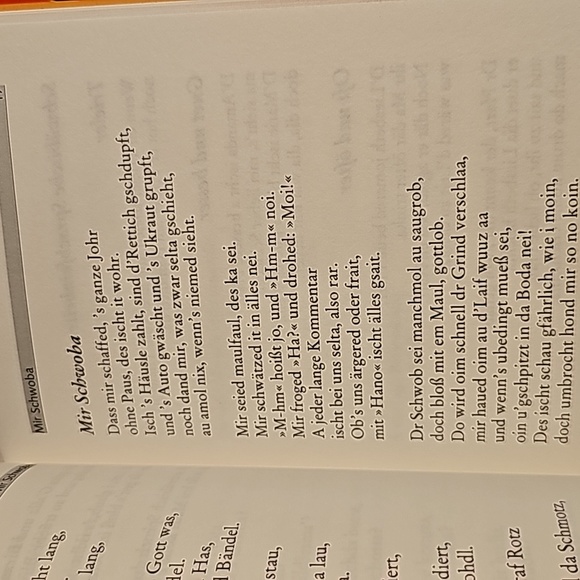 Mir Schwoba
Mir Schwoba
Dass mir schaffed, 's ganze Johr
ohne Paus, des ischt it wohr.
Isch 's Häusle zahlt, sind d'Rettich gschdupft,
und 's Auto gwäscht und 's Ukraut grupft,
noch dand mir, was zwar selta gschieht,
au amol nix, wenn's niemed sieht.
Mir seied maulfaul, des ka sei.
Mir schwätzed it in älles nei.
»M-hm« hoißt jo, und »Hm-m« noi.
Mir froged »Ha?« und drohed: »Moi!«
A jeder lange Kommentar
ischt bei uns selta, also rar.
Ob's uns ärgered oder frait,
mit »Hano« ischt älles gsait.
Dr Schwob sei manchmol au saugrob,
doch bloß mit em Maul, gottlob.
Do wird oim schnell dr Grind verschlaa,
mir haued oim au d'Läif wuuz aa
und wenn's ubedingt mueß sei,
oin u'gschpitzt in da Boda nei!
Des ischt schau gfährlich, wie i moin,
doch umbrocht hond mir so no koin.
ht lang,
lang,
Gott was,
del.
Has,
Bändel.
stau,
a lau,
ert,
diert,
ohdl.
af Rotz
da Schmotz,